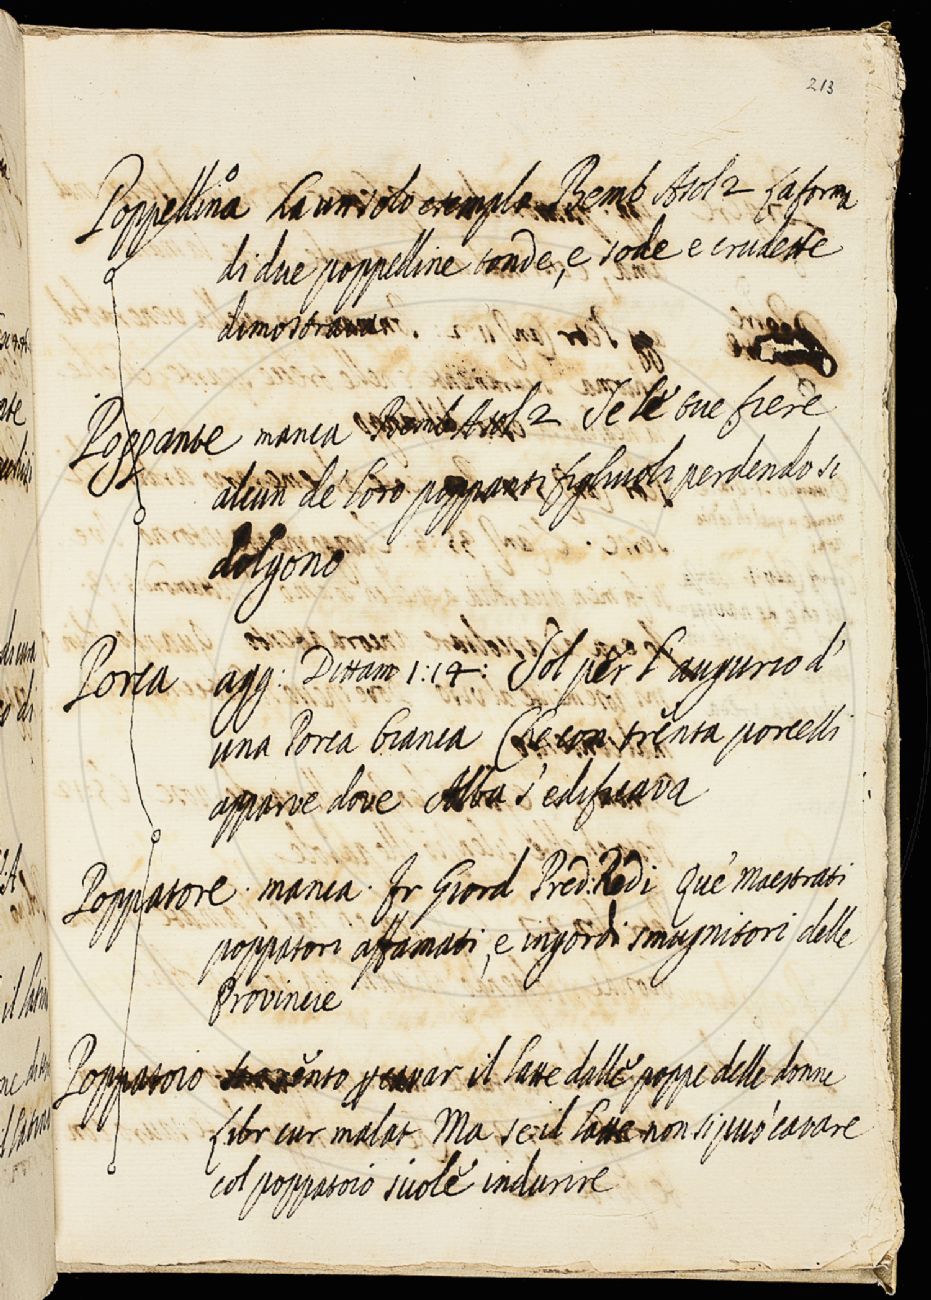 213
Poppellina ha un solo esemplo Bemb Asol 2 La forma
di due poppelline tonde, e sode e crudette
dimostravan
Poppante manca Bemb Asol 2 Se le tue fiere
alcun de loro poppanti figliuoli perdendo si
dolgono
Porca agg: Dittam 1:14: Sol per l'augurio d'
una Porca bianca Che con trenta porcelli
apparve dove Alba s'edificava
Poppatore. manca. fr Giord Pred: Redi Que' maestrati
poppatori affamati, e ingordi smugnitori delle
Provincie
Poppatoio il latte dalle poppe delle donne
Libr cur malat Ma se il latte non si può cavare
col poppatoio suole indurire